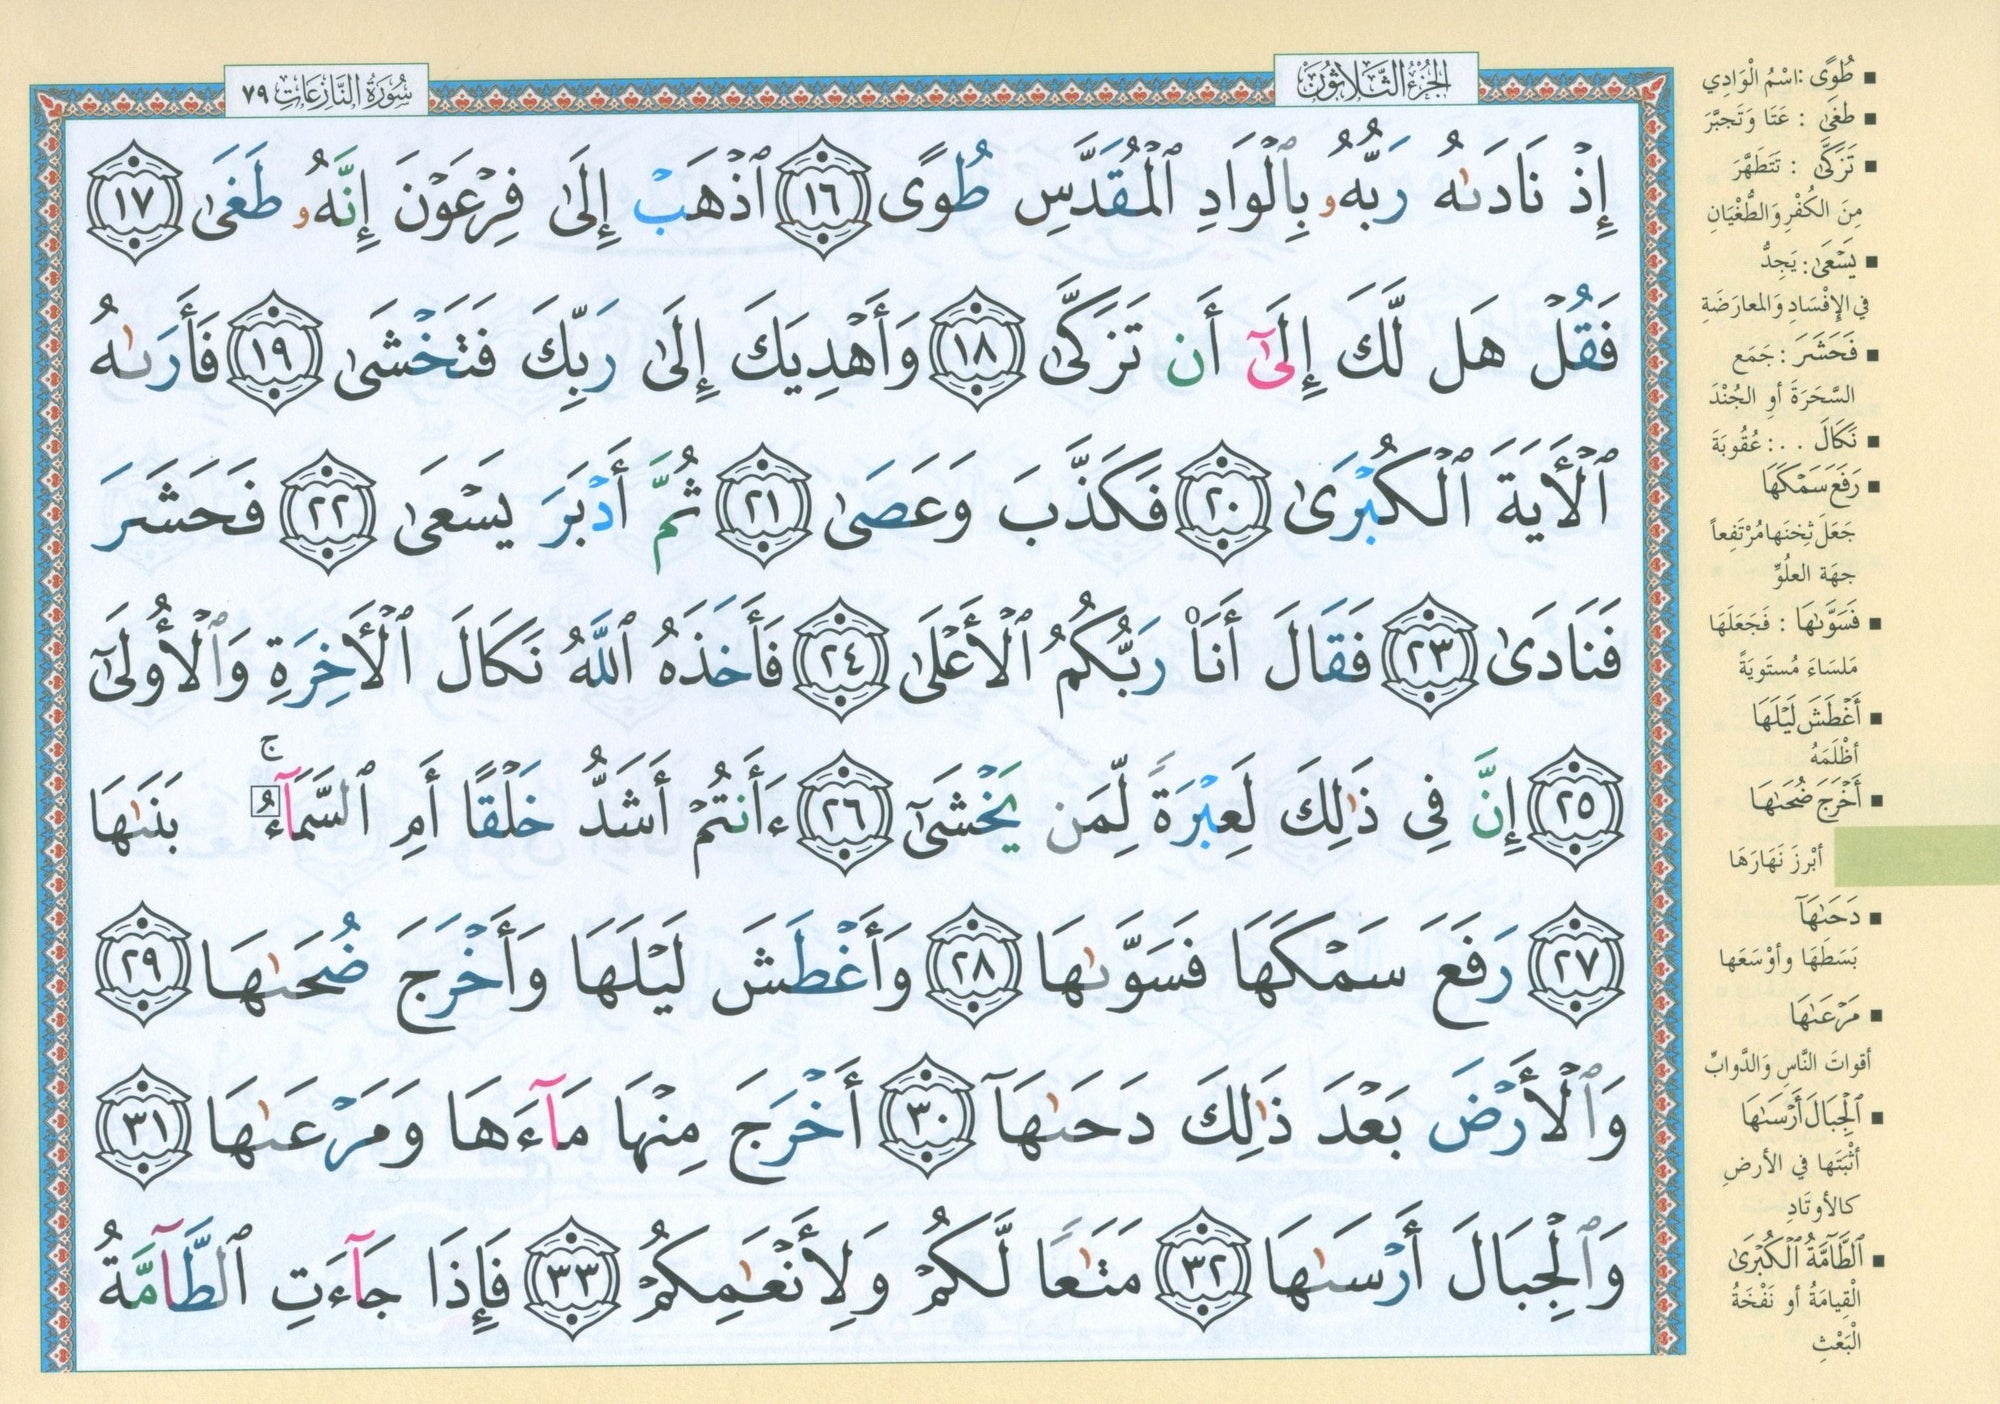 الجزء الثلاثون
سورة النازعات ٧٩
إِذْ نَادَىٰهُ رَبُّهُۥ بِٱلْوَادِ ٱلْمُقَدَّسِ طُوًى ١٦ ٱذْهَبْ إِلَىٰ فِرْعَوْنَ إِنَّهُۥ طَغَىٰ ١٧
فَقُلْ هَل لَّكَ إِلَىٰٓ أَن تَزَكَّىٰ ١٨ وَأَهْدِيَكَ إِلَىٰ رَبِّكَ فَتَخْشَىٰ ١٩ فَأَرَىٰهُ
ٱلْأَيَةَ ٱلْكُبْرَىٰ ٢٠ فَكَذَّبَ وَعَصَىٰ ٢١ ثُمَّ أَدْبَرَ يَسْعَىٰ ٢٢ فَحَشَرَ
فَنَادَىٰ ٢٣ فَقَالَ أَنَا۠ رَبُّكُمُ ٱلْأَعْلَىٰ ٢٤ فَأَخَذَهُ ٱللَّهُ نَكَالَ ٱلْأَخِرَةِ وَٱلْأُولَىٰٓ
٢٥ إِنَّ فِى ذَٰلِكَ لَعِبْرَةً لِّمَن يَخْشَىٰٓ ٢٦ ءَأَنتُمْ أَشَدُّ خَلْقًا أَمِ ٱلسَّمَآءُ ۚ بَنَىٰهَا
٢٧ رَفَعَ سَمْكَهَا فَسَوَّىٰهَا ٢٨ وَأَغْطَشَ لَيْلَهَا وَأَخْرَجَ ضُحَىٰهَا ٢٩
وَٱلْأَرْضَ بَعْدَ ذَٰلِكَ دَحَىٰهَآ ٣٠ أَخْرَجَ مِنْهَا مَآءَهَا وَمَرْعَىٰهَا ٣١
وَٱلْجِبَالَ أَرْسَىٰهَا ٣٢ مَتَٰعًا لَّكُمْ وَلِأَنْعَٰمِكُمْ ٣٣ فَإِذَا جَآءَتِ ٱلطَّآمَّةُ
■ طُوًى : اسْمُ الْوَادِي
■ طَغَىٰ : عَتَا وَتَجَبَّرَ
■ تَزَكَّىٰ : تَتَطَهَّرَ
مِنَ الكُفْرِ وَالطُّغْيَانِ
■ يَسْعَىٰ : يَجِدُّ
في الإِفْسَادِ وَالمعارَضَةِ
■ فَحَشَرَ : جَمَع
السَّحَرَةَ أوِ الجُنْدَ
■ نَكَالَ .. : عُقُوبَةَ
■ رَفَعَ سَمْكَهَا
جَعَلَ ثِخنَها مُرْتَفِعاً
جهَة العلُوِّ
■ فَسَوَّىٰهَا : فَجَعَلَهَا
مَلسَاءَ مُستَوِيَةً
■ أَغْطَشَ لَيْلَهَا
أظْلَمَهُ
■ أَخْرَجَ ضُحَىٰهَا
أبْرزَ نَهَارَهَا
■ دَحَىٰهَآ
بَسَطَهَا وأوْسَعَها
■ مَرْعَىٰهَا
أقواتَ النَّاسِ وَالدَّوابِّ
■ ٱلْجِبَالَ أَرْسَىٰهَا
أثْبَتَها في الأرضِ
كالأوتَادِ
■ ٱلطَّآمَّةُ ٱلْكُبْرَىٰ
الْقِيامَةُ أو نَفْخَةُ
الْبَعْثِ